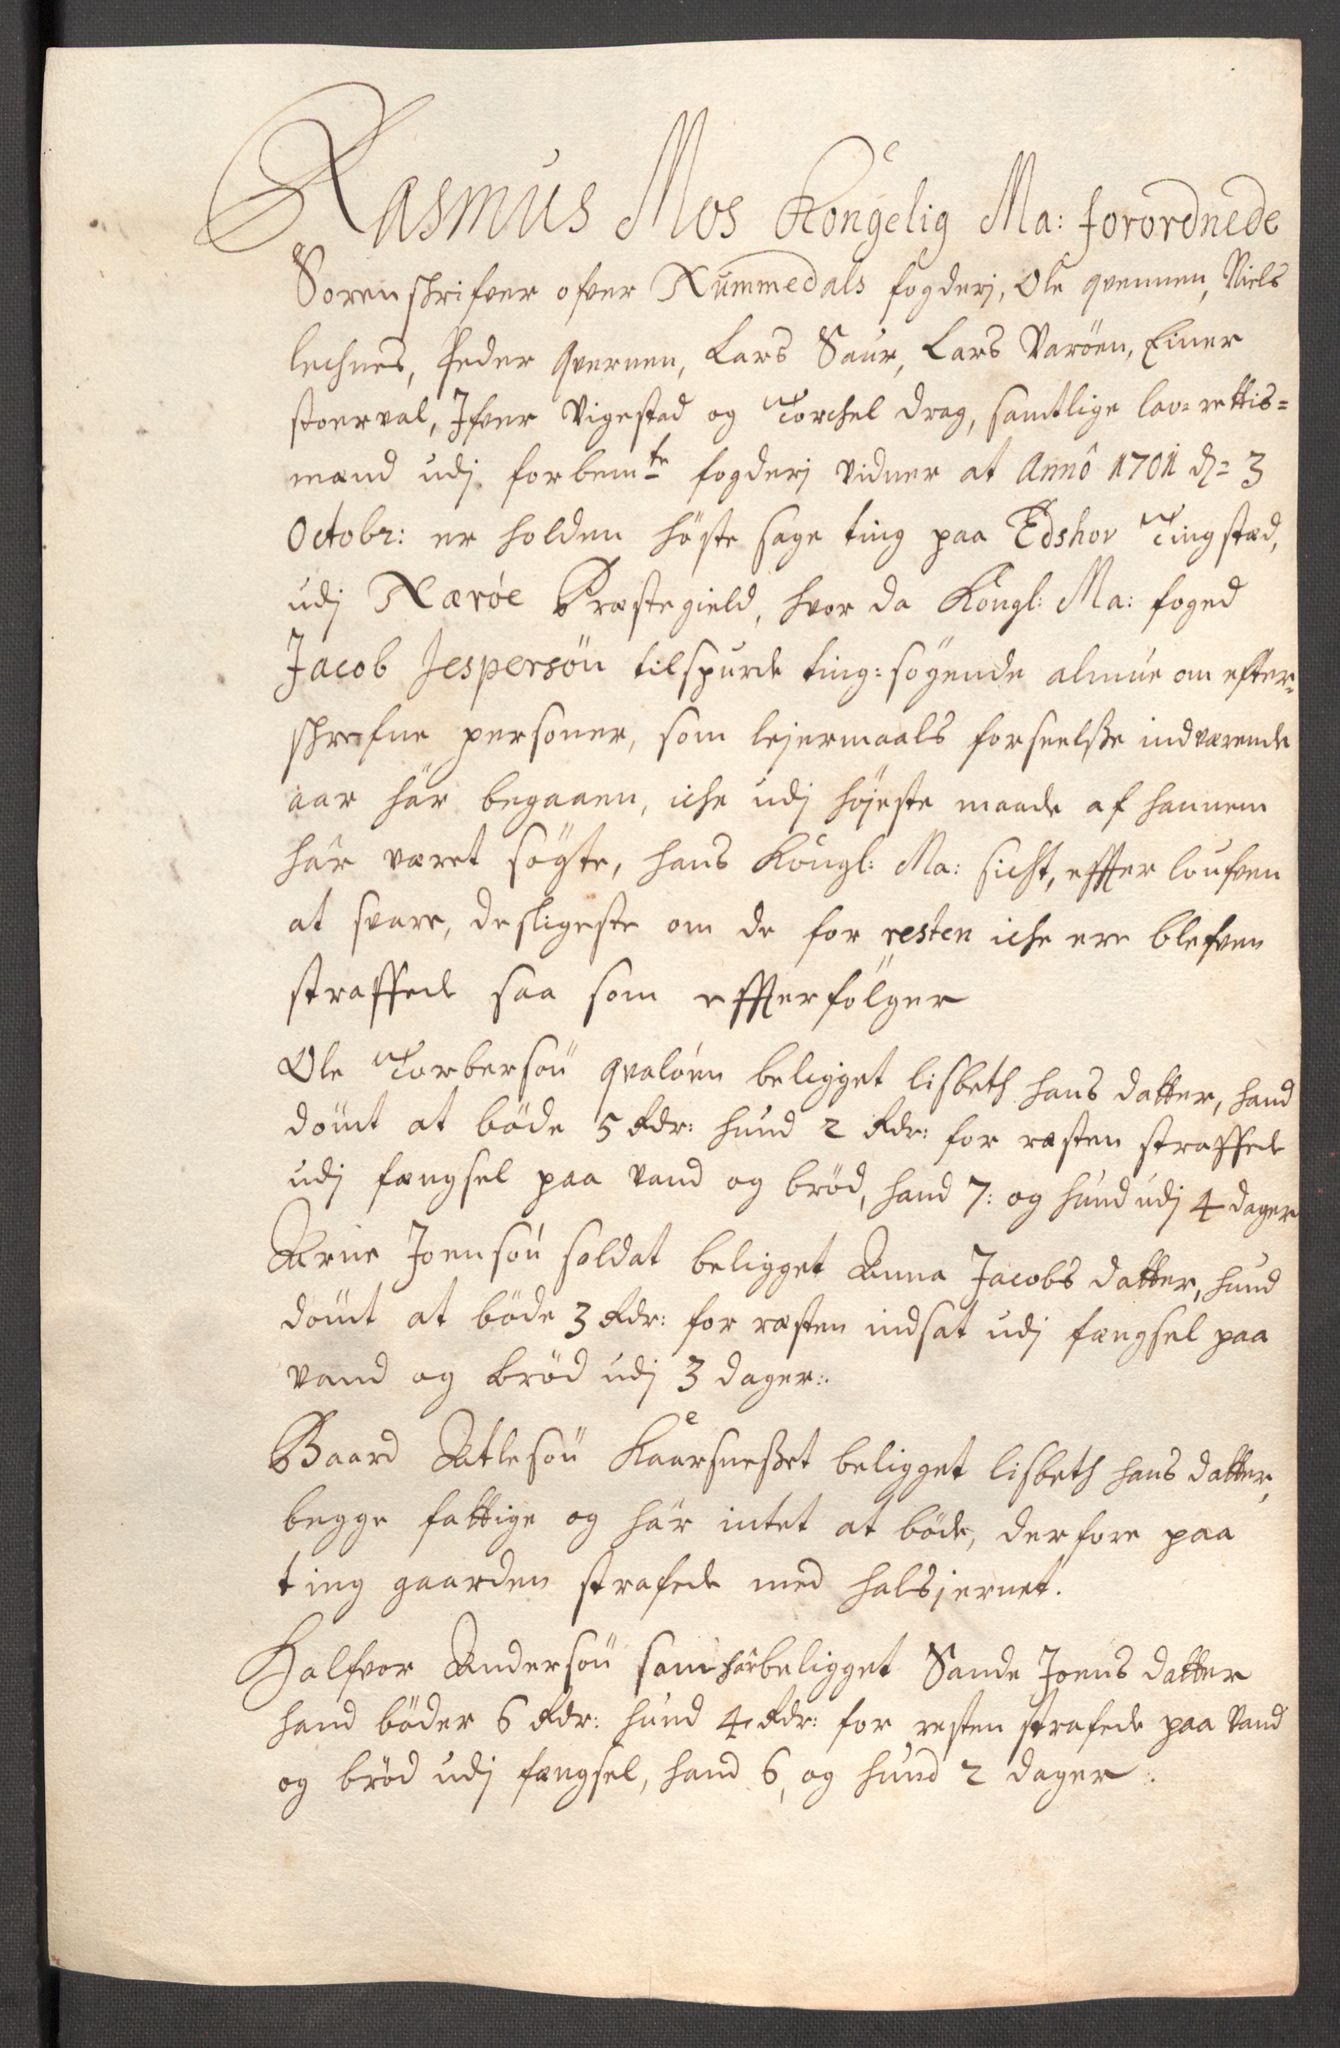 Rasmus Mos Kongelig Ma: forordnede
Sorenskrifver ofver Nummedals fogderj, Ole qvennen, Niels
lechnes, Peder Qvernen, Lars Saur, Lars Varöen, Einer
stoerval, Ifver Vigestad og Torchel drag, samtlige lav-rettis-
mænd udj forbemte fogderj vidner at Annô 1701 d= 3
Octobr: er holden höste sage ting paa Edshov Tingstæd,
udj Nærøe Præstegield, hvor da Kongl: Ma: foged
Jacob Jespersön tilspurde ting=søgende almúe om efter-
skrefne personer, som lejermaals forseelsse indværende
aar här begaaen, iche udj højeste maade af hannem
här været søgte, hans Kongl: Ma: sicht, effter loufven
at svare, desligeste om de for resten iche ere blefven
straffede saa som effterfölger
Ole Torbersön qvalöen beligget lisbeth hans datter, hand
dömt at böde 5 Rdr: hund 2 Rdr: for resten straffede
udj fængsel paa vand og bröd, hand 7: og hund udj 4 dager
Arne Joensön soldat beligget Anna Jacobs datter, hund
dömt at böde 3 Rdr: for resten indsat udj fængsel paa
vand og bröd udj 3 dager:.
Baard Atlesön Kaarsnesset beligget lisbeth hans datter,
begge fattige og här intet at böde, derfore paa
ting gaarden strafede med halsjernet.
Halfvor Andersön som här beligget Sande Joens datter
hand böder 6 Rdr: hund 4 Rdr: for resten strafede paa vand
og bröd udj fængsel, hand 6, og hund 2 dager: